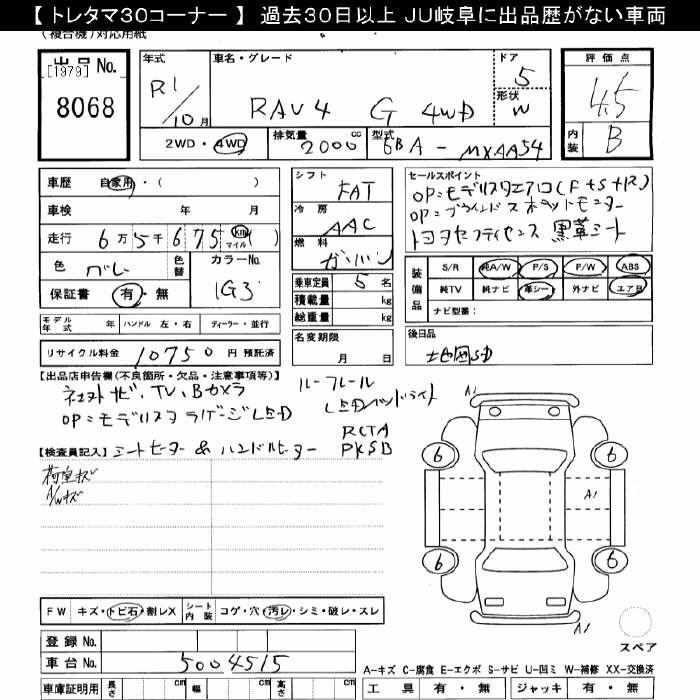 【 トレタマ30コーナー 】 過去30日以上 JU岐阜に出品歴がない車両
(複合機)対応用紙
出品No.
[1979]
8068
年式
R1/10月
車名・グレード
RAV4 G 4WD
ドア
5
形状
W
2WD・4WD
排気量 2000 cc
型式 6BA - MXAA54
評価点
4.5
内装
B
車歴 自家用・( )
車検 年 月
走行 6万5千675 km マイル ( )
色 グレー
色替
カラーNo.
1G3
保証書 有・無
シフト
FAT
冷房
AAC
燃料
ガソリン
乗車定員 5 名
積載量 kg
総重量 kg
名変期限
月 日
セールスポイント
OP=モデリスタエアロ(F+S+R)
OP=ブラインドスポットモニター
トヨタセーフティセンス 黒革シート
装備品
S/R 純A/W P/S P/W ABS
純TV 純ナビ 革シート 外ナビ エアB
ナビ型番:
モデル年式 年 ハンドル 左・右 ディーラー・並行
リサイクル料金 10750 円 預託済
後日品
地図SD
【出品店申告欄(不良箇所・欠品・注意事項等)】
ルーフレール
ナビ、TV、Bカメラ
LEDヘッドライト
OP=モデリスタ ラゲージLED
RCTA
PKSB
【検査員記入】
シートヒーター & ハンドルヒーター
荷室キズ
A/Wキズ
A1
6 6
A1
6 6
A1
FW キズ・トビ石・割レX
シート内装 コゲ・穴・汚レ・シミ・破レ・スレ
スペア
登録No.
車台No. 5004515
A-キズ C-腐食 E-エクボ S-サビ U-凹ミ W-補修 XX-交換済
車庫証明用 長さ cm 幅 cm 高さ cm
工具 有・無 ジャッキ 有・無